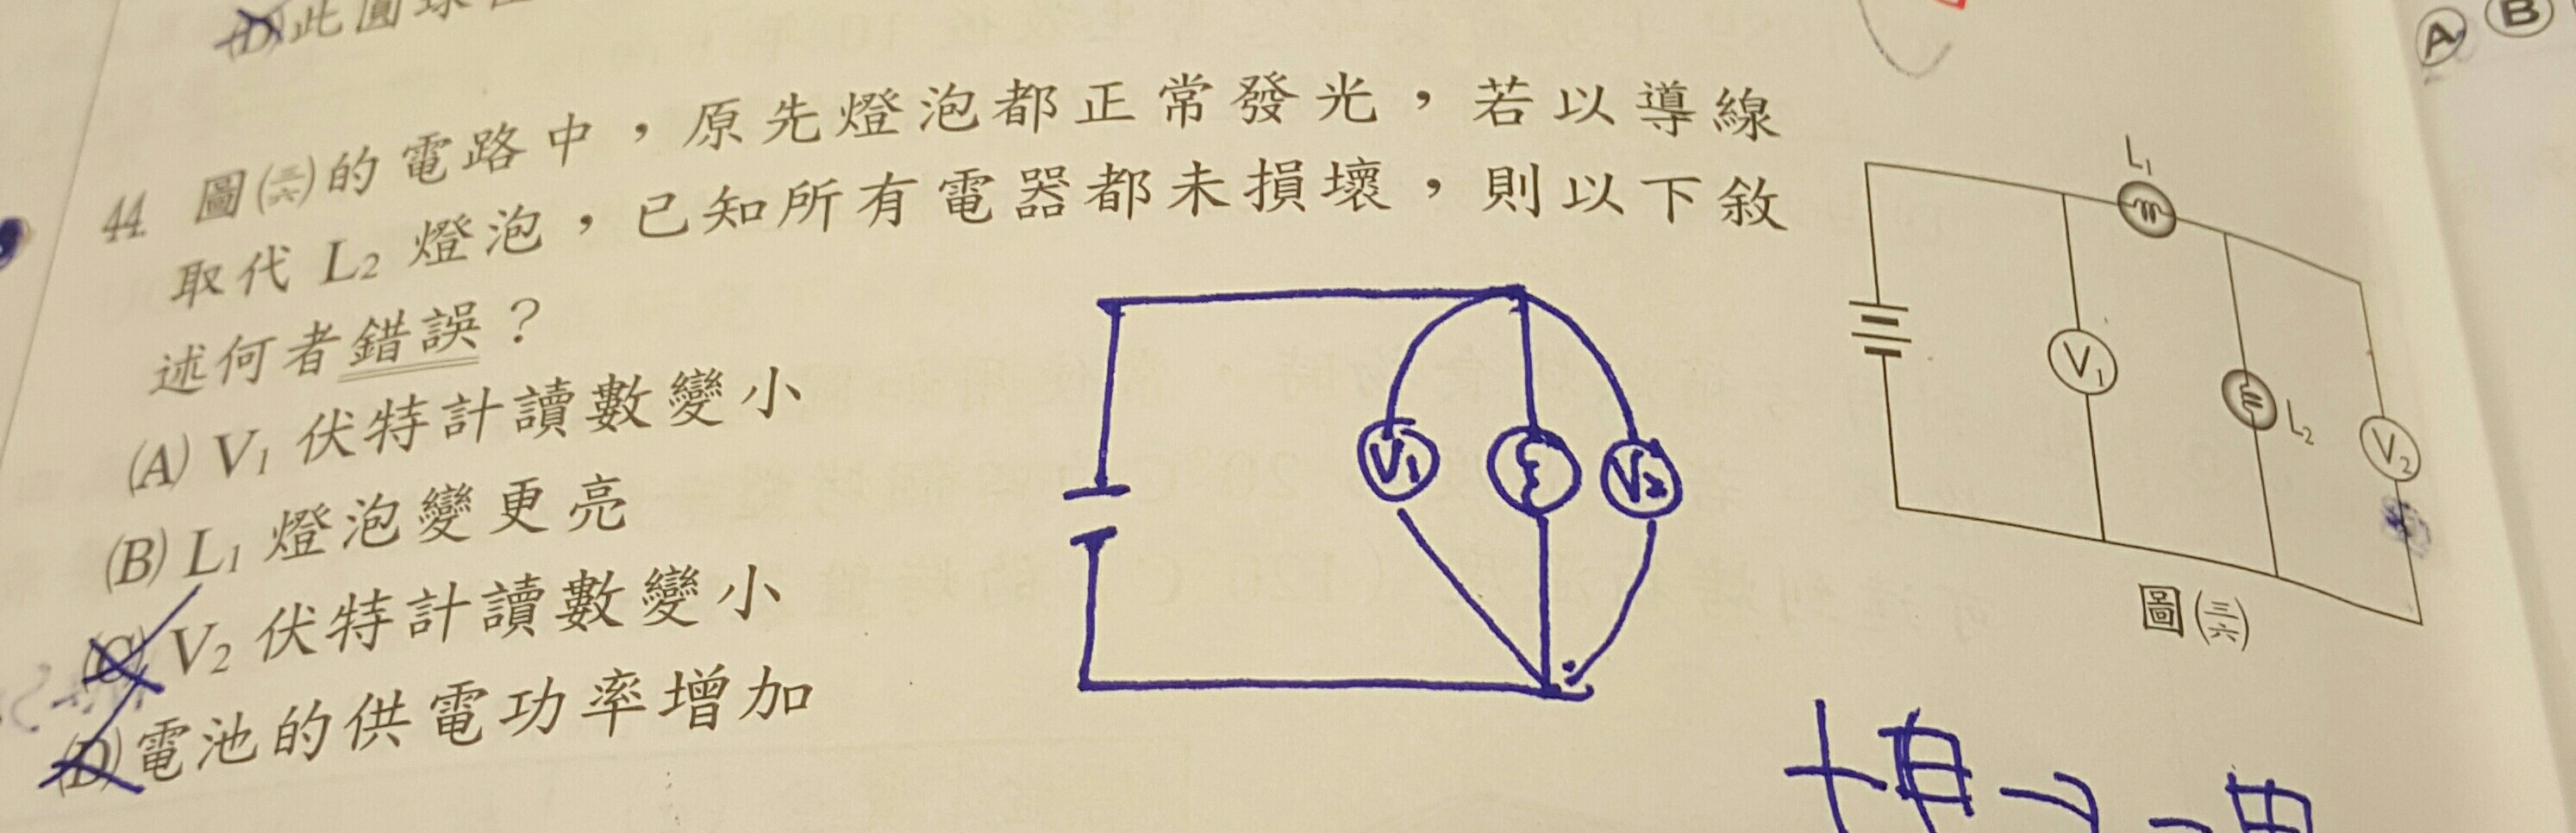 (D)此圓球
44. 圖(三六)的電路中，原先燈泡都正常發光，若以導線
取代 L₂ 燈泡，已知所有電器都未損壞，則以下敘
述何者錯誤？
(A) V₁ 伏特計讀數變小
(B) L₁ 燈泡變更亮
(C) V₂ 伏特計讀數變小
(D) 電池的供電功率增加
V₁
V₂
L₁
V₁
L₂
V₂
圖(三六)
A B